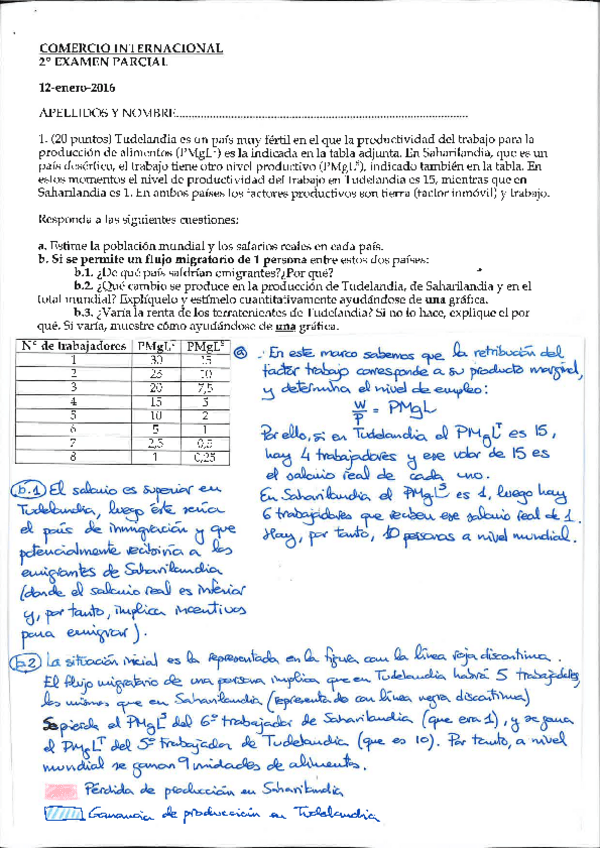 COMERCIO INTERNACIONAL
2º EXAMEN PARCIAL
12-enero-2016
APELLIDOS Y NOMBRE
1. (20 puntos) Tudelandia es un país muy fértil en el que la productividad del trabajo para la
producción de alimentos (PMgLT) es la indicada en la tabla adjunta. En Saharilandia, que es un
país desértico, el trabajo tiene otro nivel productivo (PMgLS), indicado también en la tabla. En
estos momentos el nivel de productividad del trabajo en Tudelandia es 15, mientras que en
Saharilandia es 1. En ambos países los factores productivos son tierra (factor inmóvil) y trabajo.
Responda a las siguientes cuestiones:
a. Estime la población mundial y los salarios reales en cada país.
b. Si se permite un flujo migratorio de 1 persona entre estos dos países:
b.1. ¿De qué país saldrían emigrantes? ¿Por qué?
b.2. ¿Qué cambio se produce en la producción de Tudelandia, de Saharilandia y en el
total mundial? Explíquelo y estímelo cuantitativamente ayudándose de una gráfica.
b.3. ¿Varía la renta de los terratenientes de Tudelandia? Si no lo hace, explique el por
qué. Si varía, muestre cómo ayudándose de una gráfica.
Nº de trabajadores PMgLT PMgLS
1 30 15
2 25 10
3 20 7,5
4 15 5
5 10 2
6 5 1
7 2,5 0,5
8 1 0,25
a) En este marco sabemos que la retribución del
factor trabajo corresponde a su producto marginal,
y determina el nivel de empleo:
W/P = PMgL
Por ello, si en Tudelandia el PMgLT es 15,
hay 4 trabajadores y ese valor de 15 es
el salario real de cada uno.
En Saharilandia el PMgLS es 1, luego hay
6 trabajadores que reciben ese salario real de 1.
Hay, por tanto, 10 personas a nivel mundial.
b.1) El salario es superior en
Tudelandia, luego éste sería
el país de inmigración y que
potencialmente recibiría a los
emigrantes de Saharilandia
(donde el salario real es inferior
y, por tanto, implica incentivos
para emigrar).
b.2) La situación inicial es la representada en la figura con la línea roja discontinua.
El flujo migratorio de una persona implica que en Tudelandia habrá 5 trabajadores,
los mismos que en Saharilandia (representado con línea negra discontinua)
Se pierde el PMgLS del 6º trabajador de Saharilandia (que era 1), y se gana
el PMgLT del 5º trabajador de Tudelandia (que es 10). Por tanto, a nivel
mundial se ganan 9 unidades de alimentos.
Pérdida de producción en Saharilandia
Ganancia de producción en Tudelandia